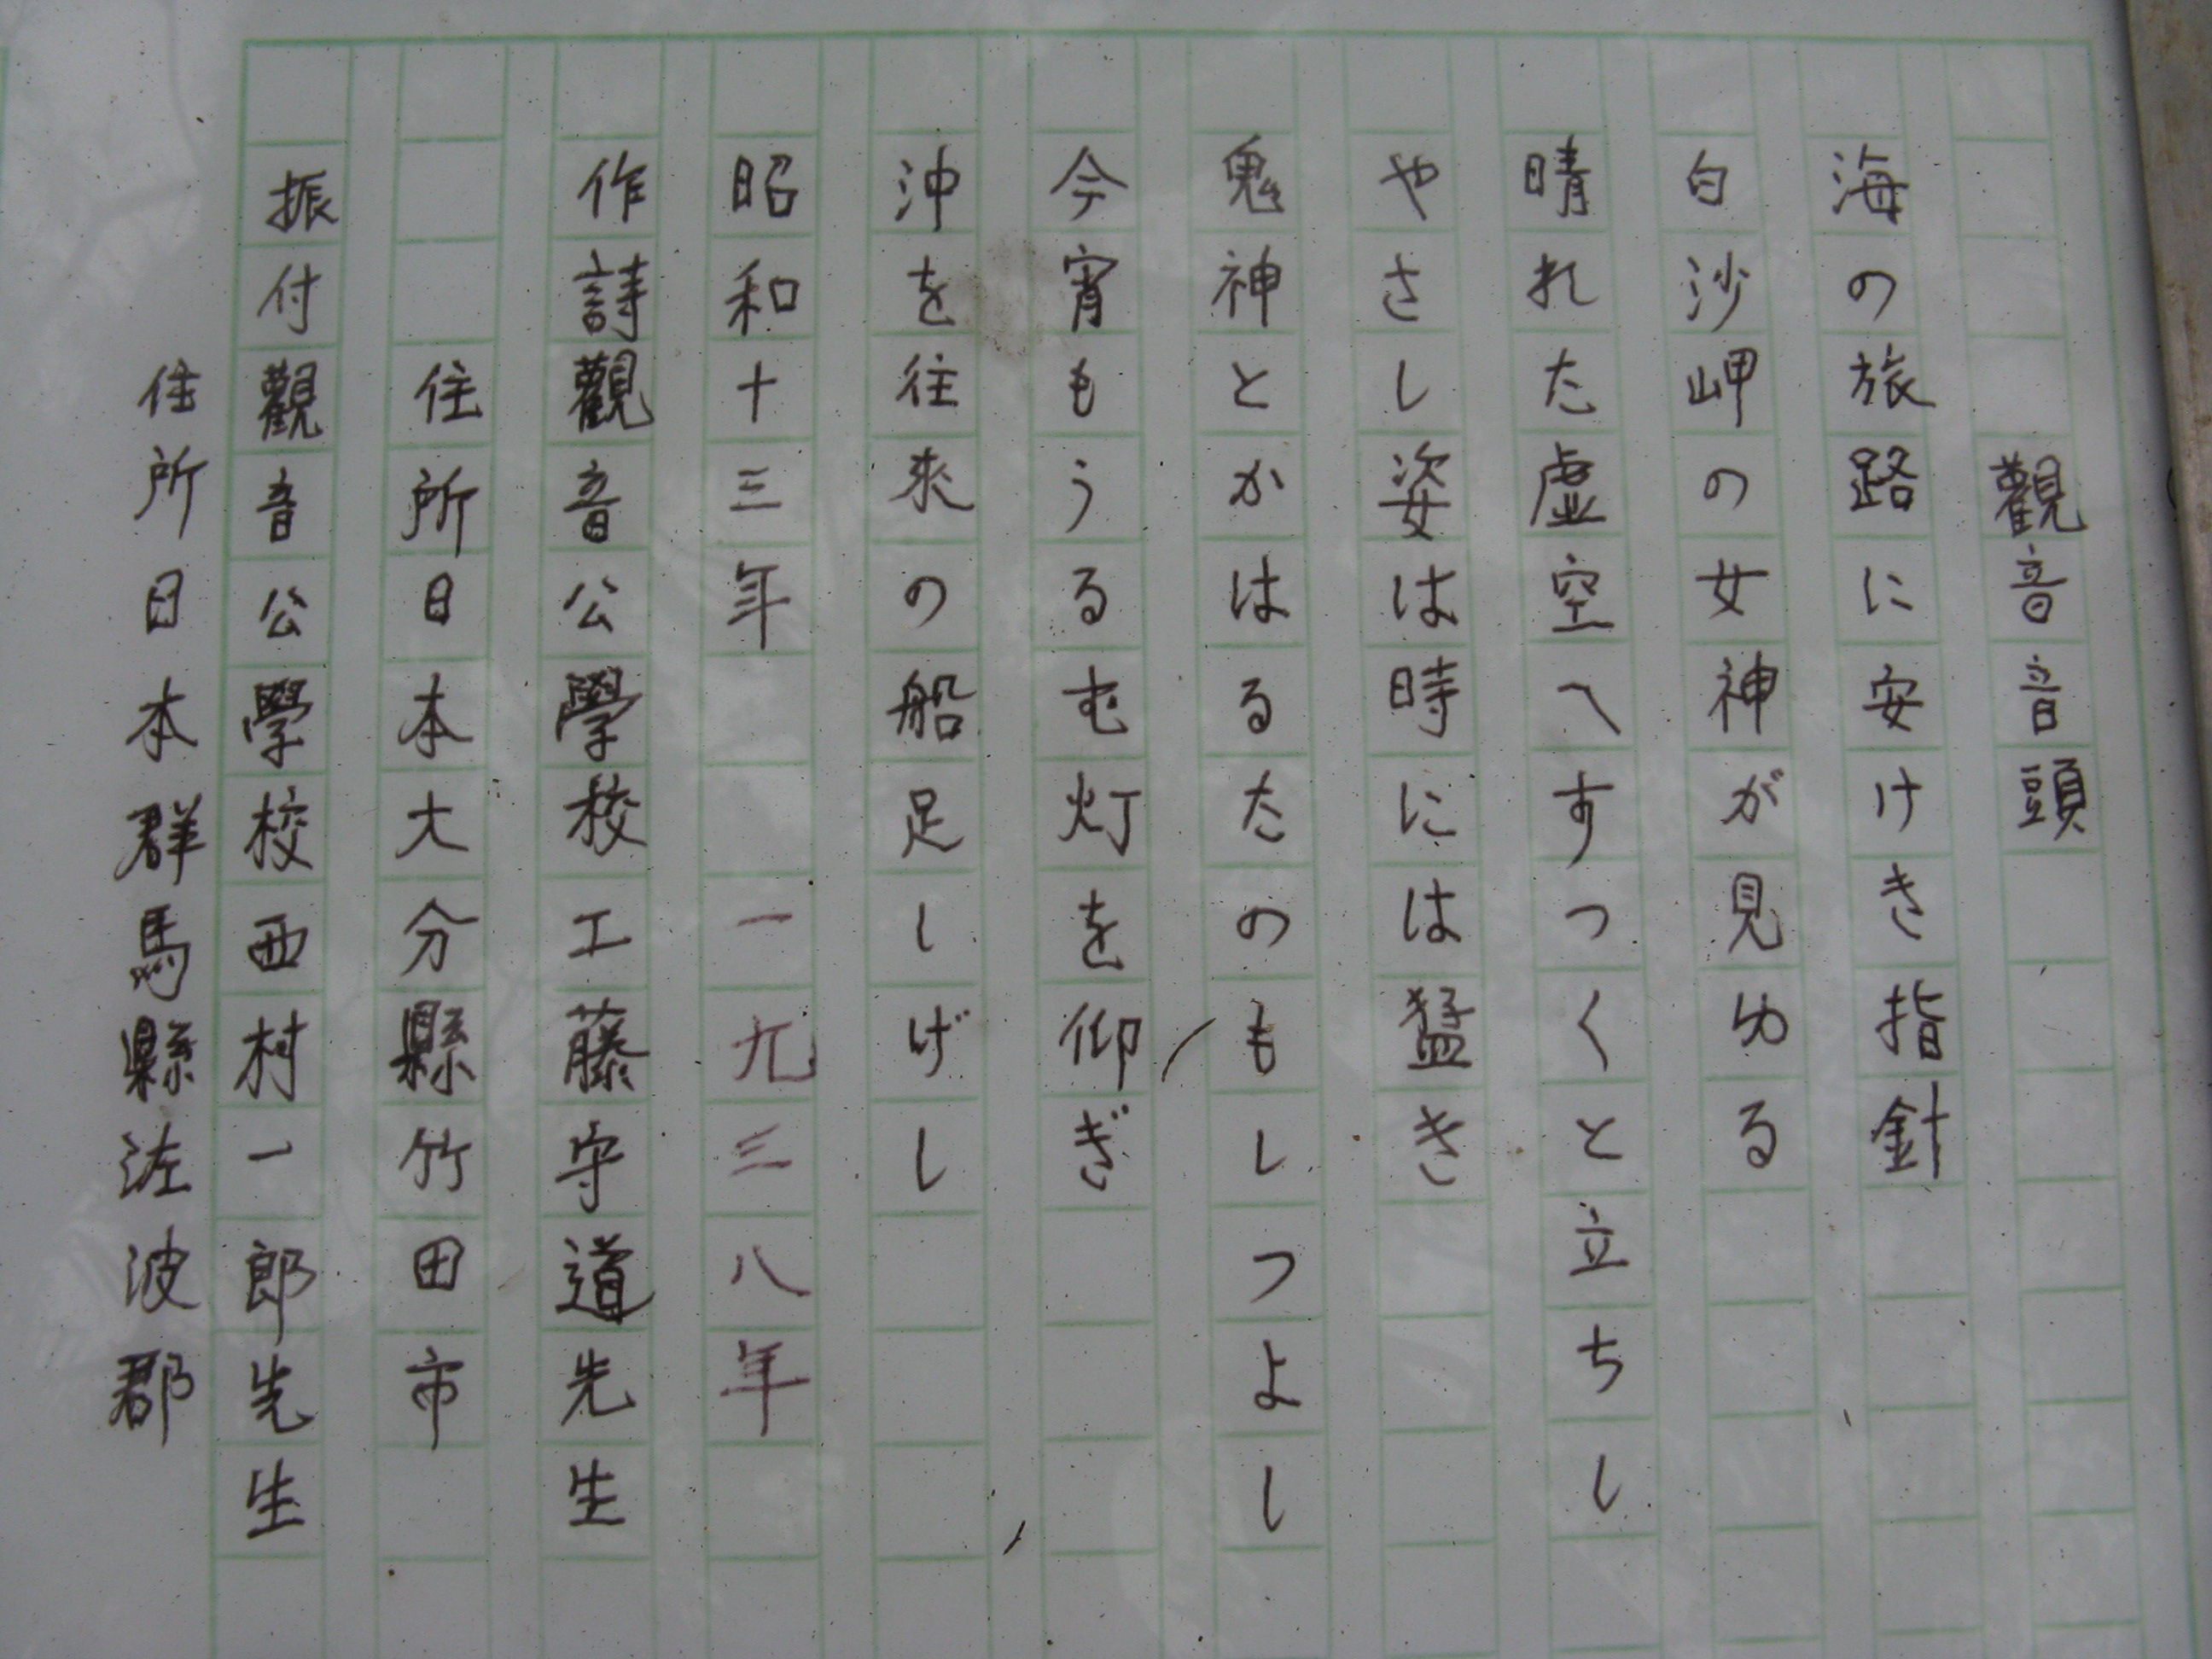 觀音音頭
海の旅路に安けき指針
白沙岬の女神が見ゆる
晴れた虚空へすつくと立ちし
やさし姿は時には猛き
鬼神とかはるたのもしつよし
今宵もうるむ灯を仰ぎ
沖を往来の船足しげし
昭和十三年 一九三八年
作詩觀音公學校工藤守道先生
住所日本大分縣竹田市
振付觀音公學校西村一郎先生
住所日本群馬縣佐波郡